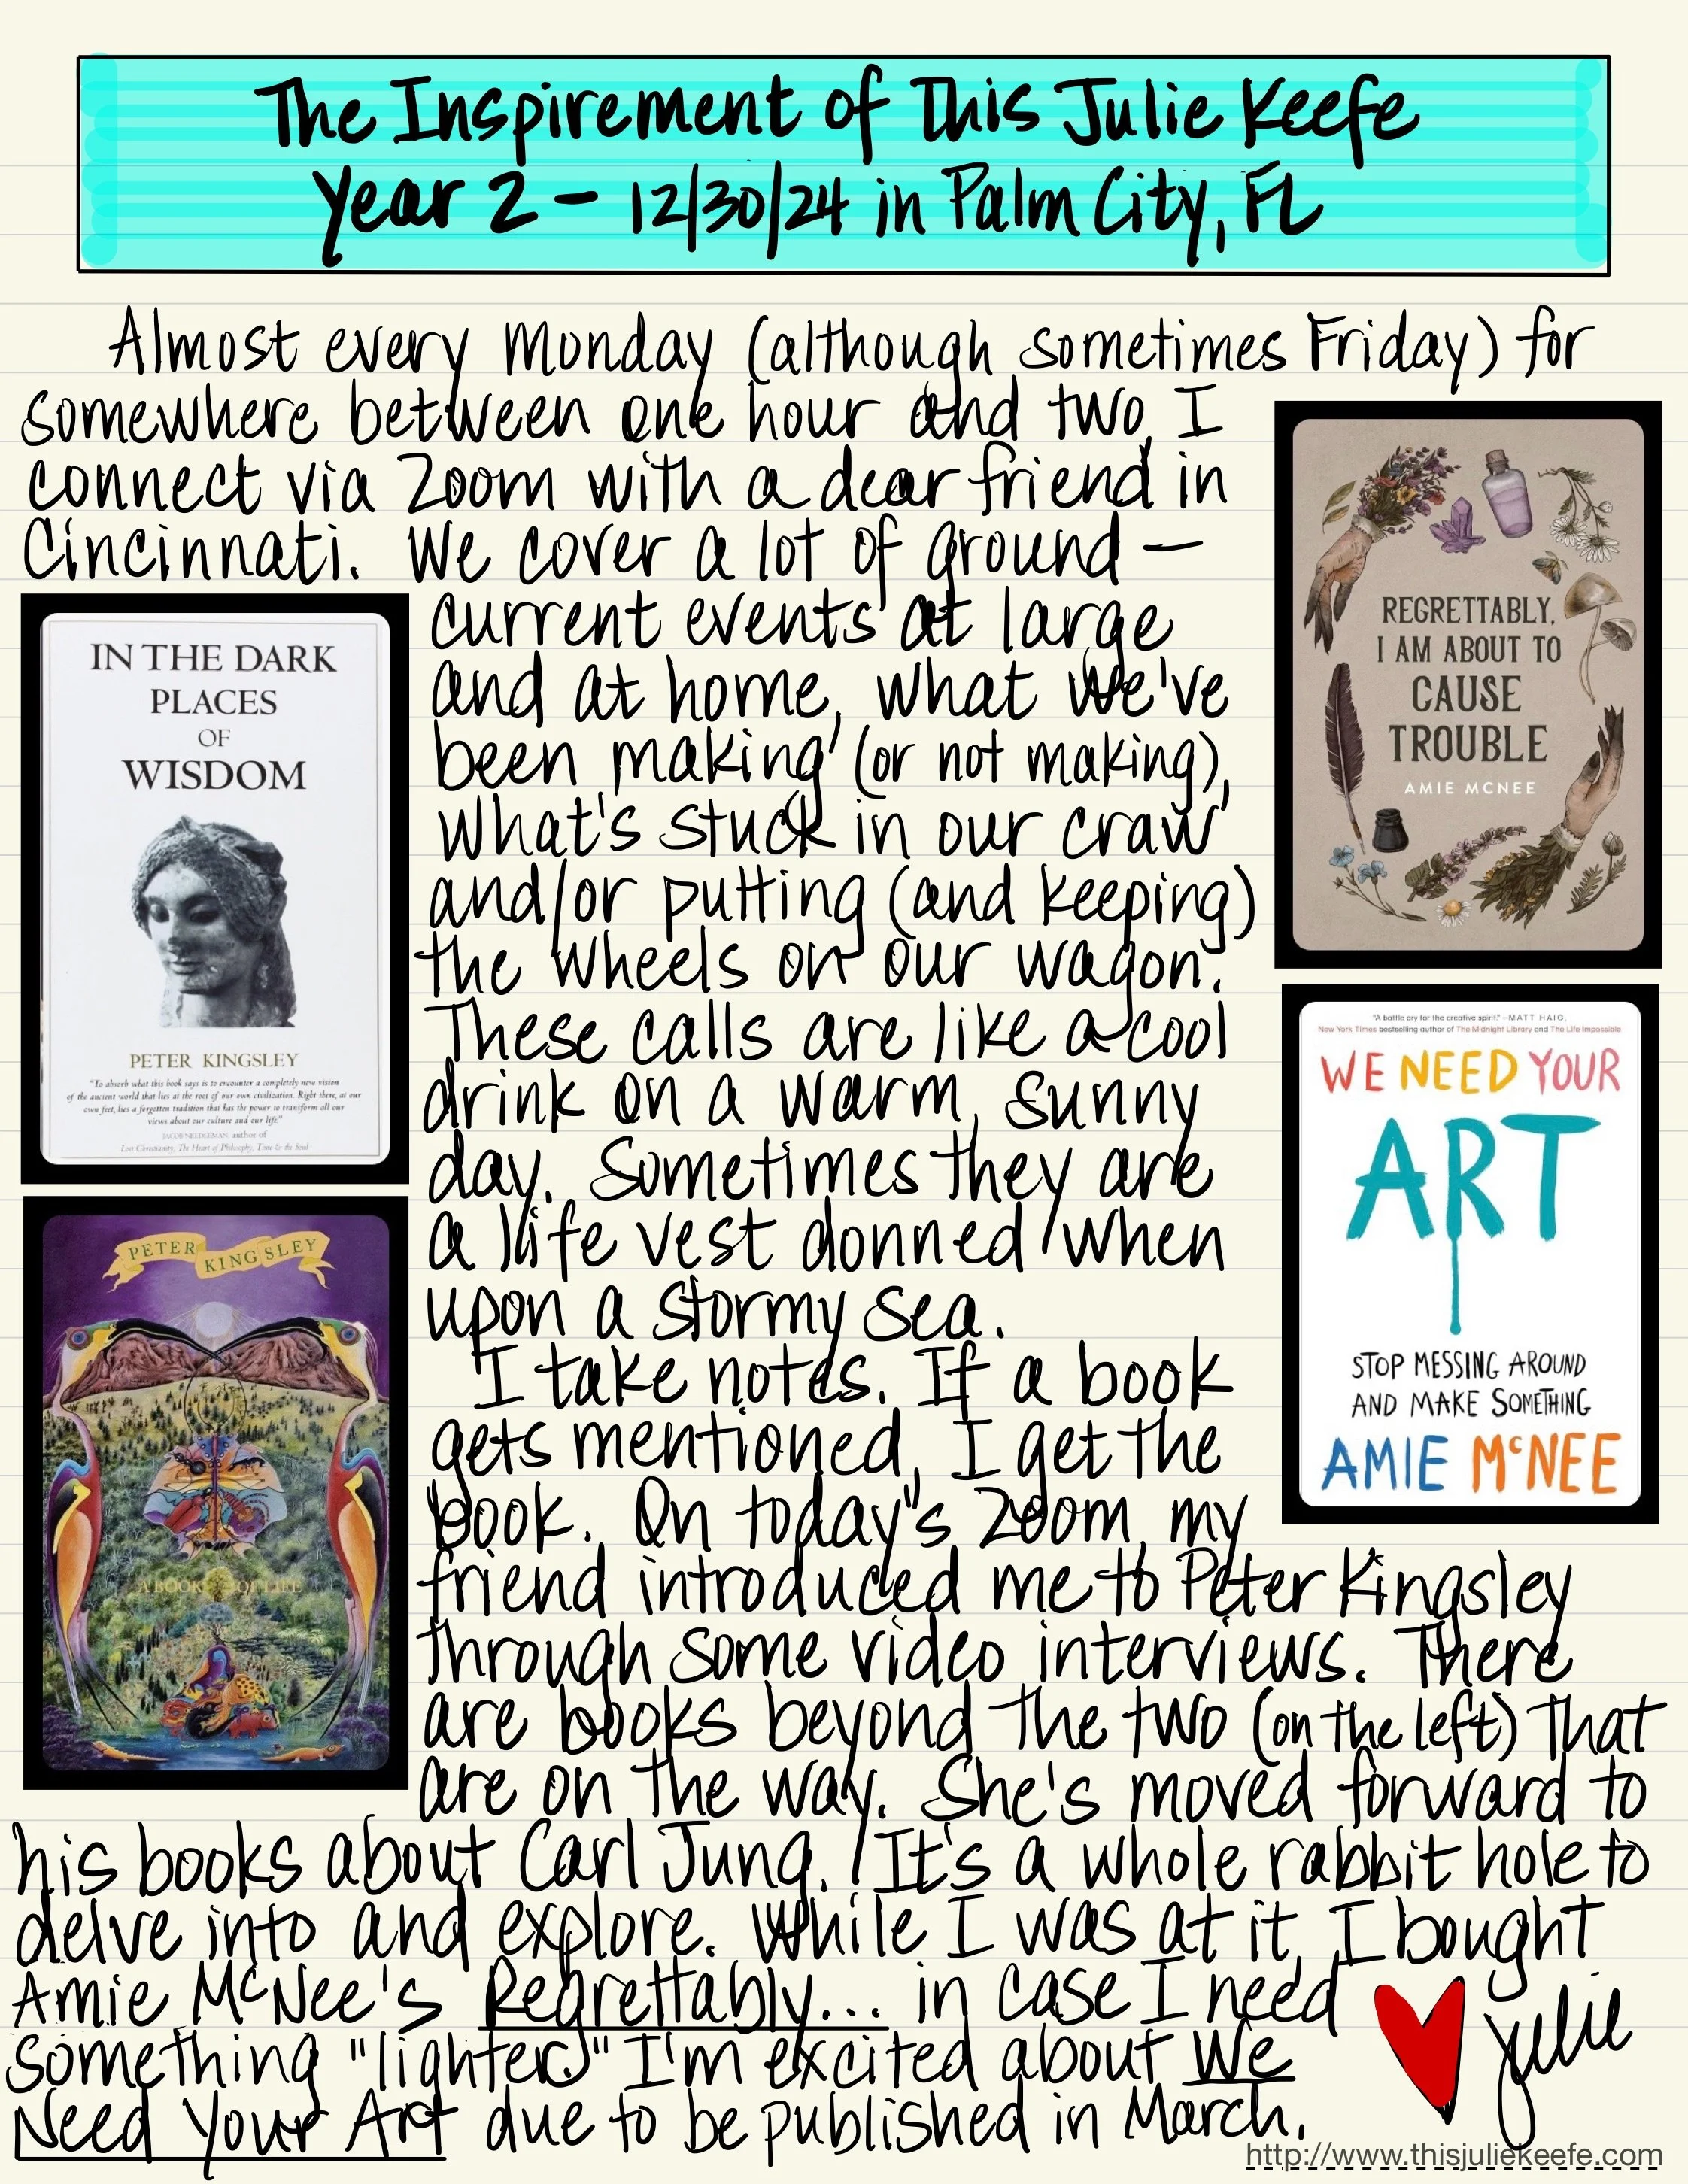 The Inspirement of This Julie Keefe
Year 2 – 12/30/24 in Palm City, FL
Almost every Monday (although sometimes Friday) for
somewhere between one hour and two, I
connect via Zoom with a dear friend in
Cincinnati. We cover a lot of ground —
current events at large
and at home, what we've
been making (or not making),
what's stuck in our craw
and/or putting (and keeping)
the wheels on our wagon.
These calls are like a cool
drink on a warm, sunny
day. Sometimes they are
a life vest donned when
upon a stormy sea.
I take notes. If a book
gets mentioned, I get the
book. On today's Zoom, my
friend introduced me to Peter Kingsley
through some video interviews. There
are books beyond the two (on the left) that
are on the way. She's moved forward to
his books about Carl Jung. It's a whole rabbit hole to
delve into and explore. While I was at it, I bought
Amie McNee's Regrettably... in case I need
something "lighter." I'm excited about We
Need Your Art due to be published in March.
julie
http://www.thisjuliekeefe.com
IN THE DARK
PLACES
OF
WISDOM
PETER KINGSLEY
"To absorb what this book says is to encounter a completely new vision
of the ancient world that lies at the root of our own civilization. Right there, at our
own feet, lies a forgotten tradition that has the power to transform all our
views about our culture and our life."
JACOB NEEDLEMAN, author of
Lost Christianity, The Heart of Philosophy, Time & the Soul
PETER KINGSLEY
A BOOK OF LIFE
REGRETTABLY,
I AM ABOUT TO
CAUSE
TROUBLE
AMIE MCNEE
"A battle cry for the creative spirit." —MATT HAIG,
New York Times bestselling author of The Midnight Library and The Life Impossible
WE NEED YOUR
ART
STOP MESSING AROUND
AND MAKE SOMETHING
AMIE McNEE